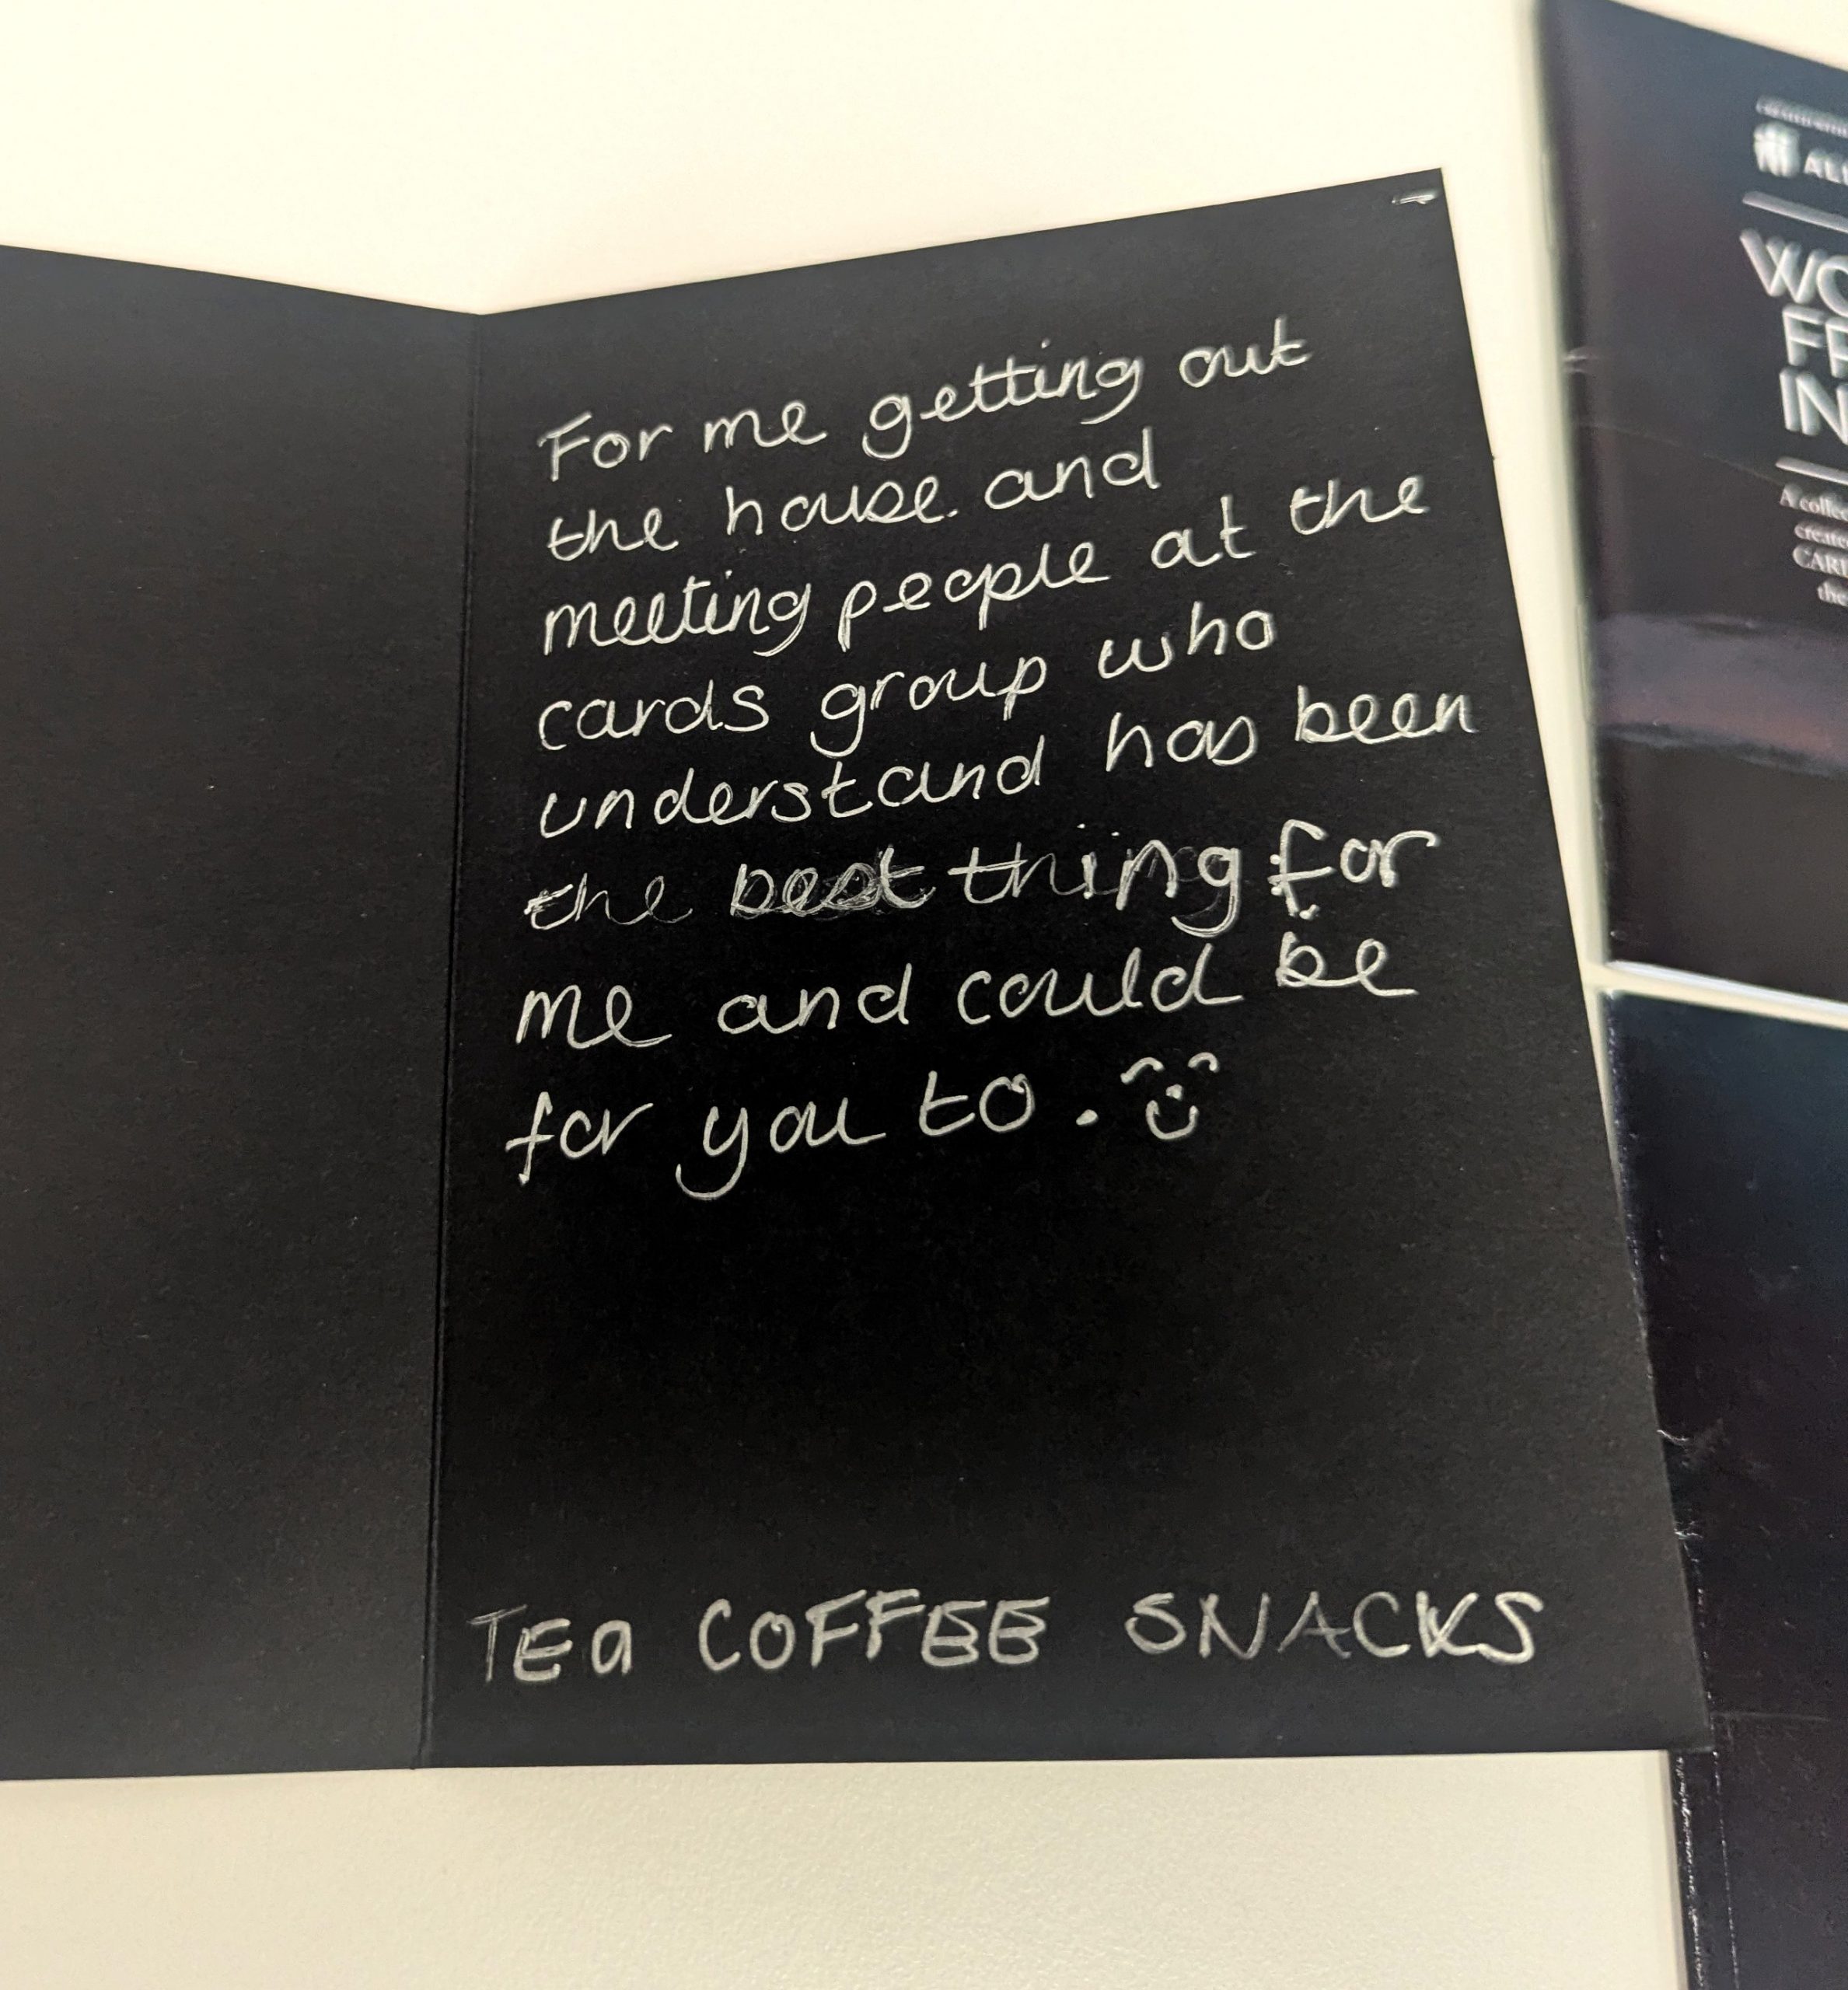 For me getting out
the house and
meeting people at the
cards group who
understand has been
the best thing for
me and could be
for you to.
TEa COFFEE SNACKS
WO
FE
IN
A collec
create
CARD
the